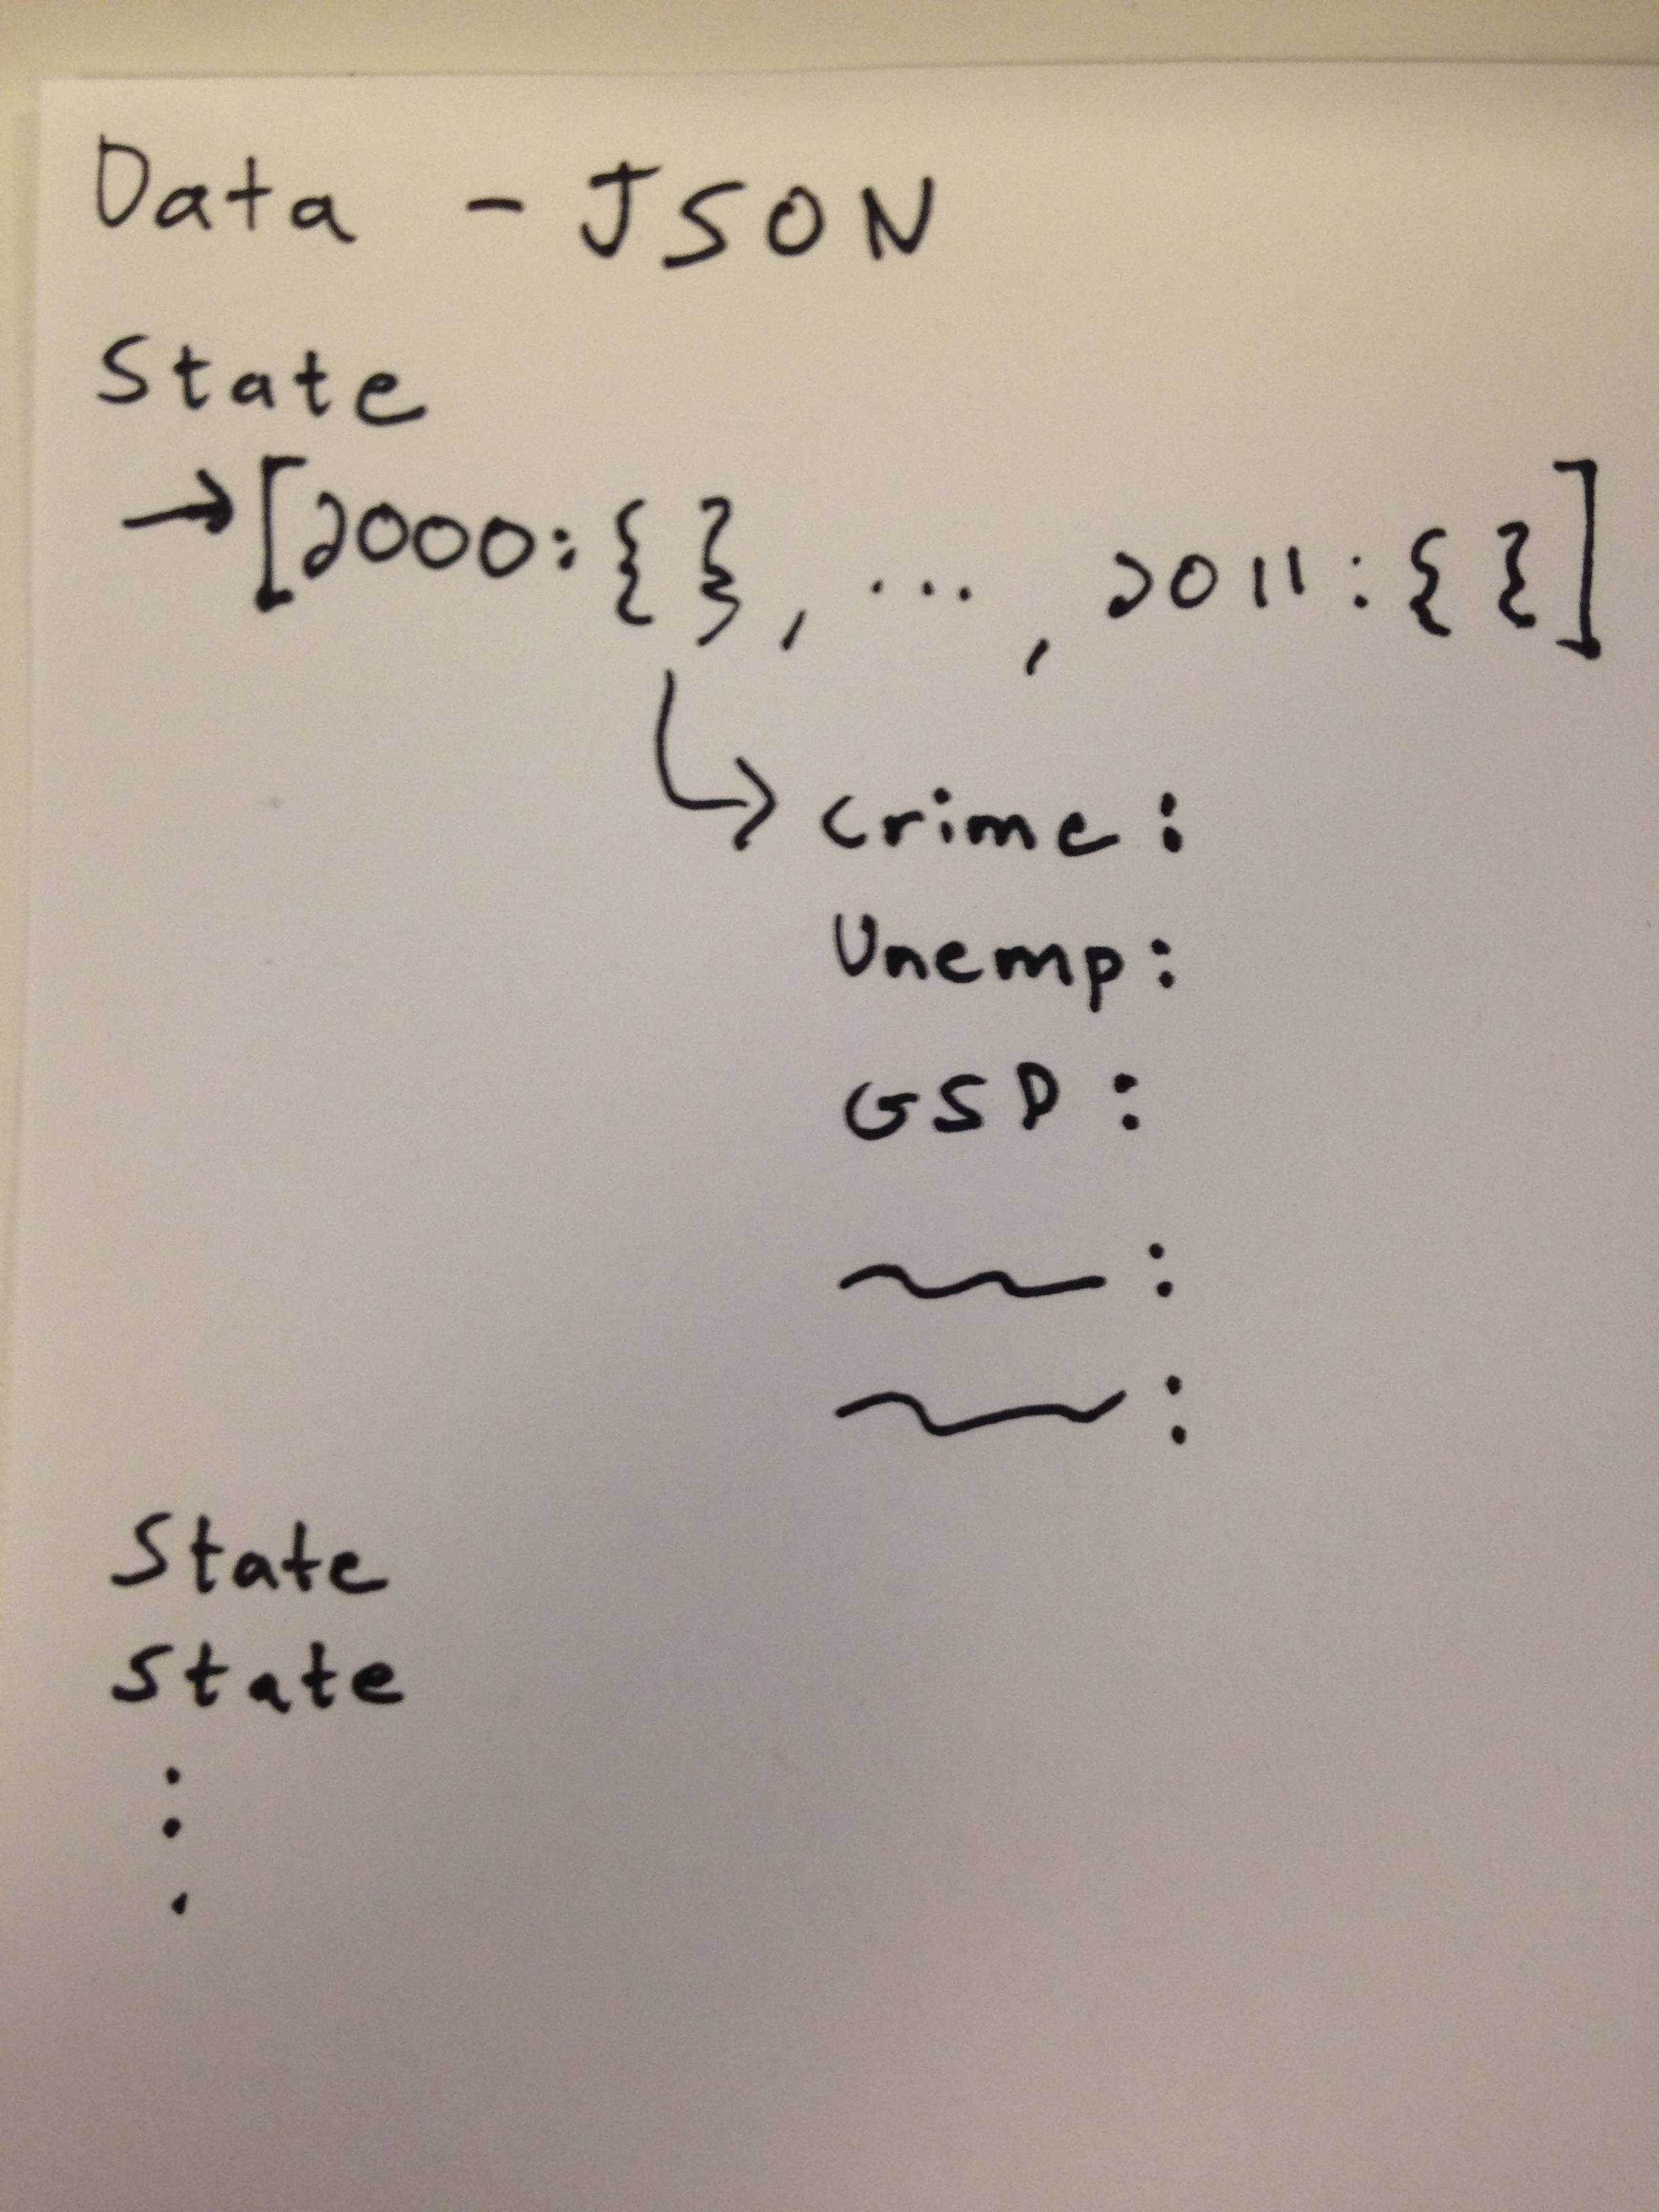 Data - JSON
State
→[2000:{}, ... , 2011:{}]
Crime:
Unemp:
GSD:
:
:
State
State
⋮